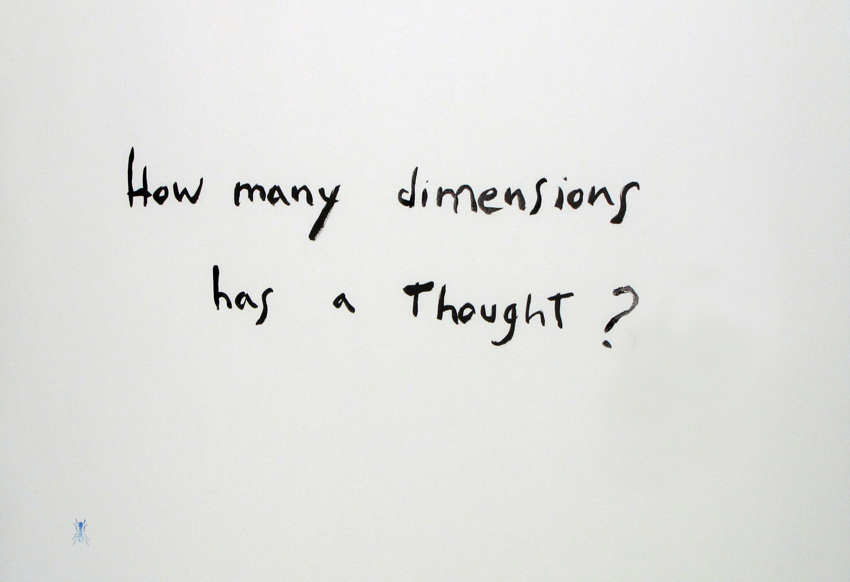 How many dimensions
has a Thought ?